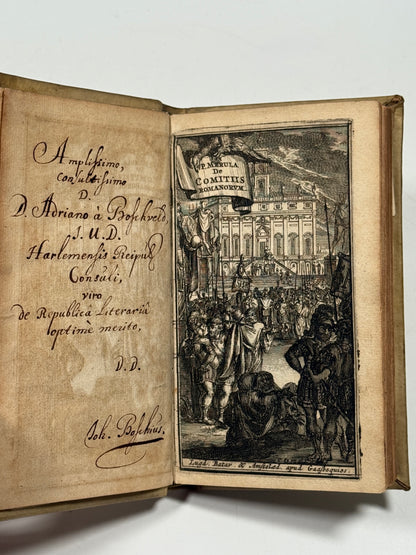 Amplissimo,
consultissimo
D.
D. Adriano à Boschveld
J. U. D.
Harlemensis Reipubl
Consuli,
viro
de Republica Literariâ
optimè merito,
D. D.
Joh. Boschius.
P. MERULA
De
COMITIIS
ROMANORUM.
Lugd. Batav. & Amstelod. apud Gaasbequios.